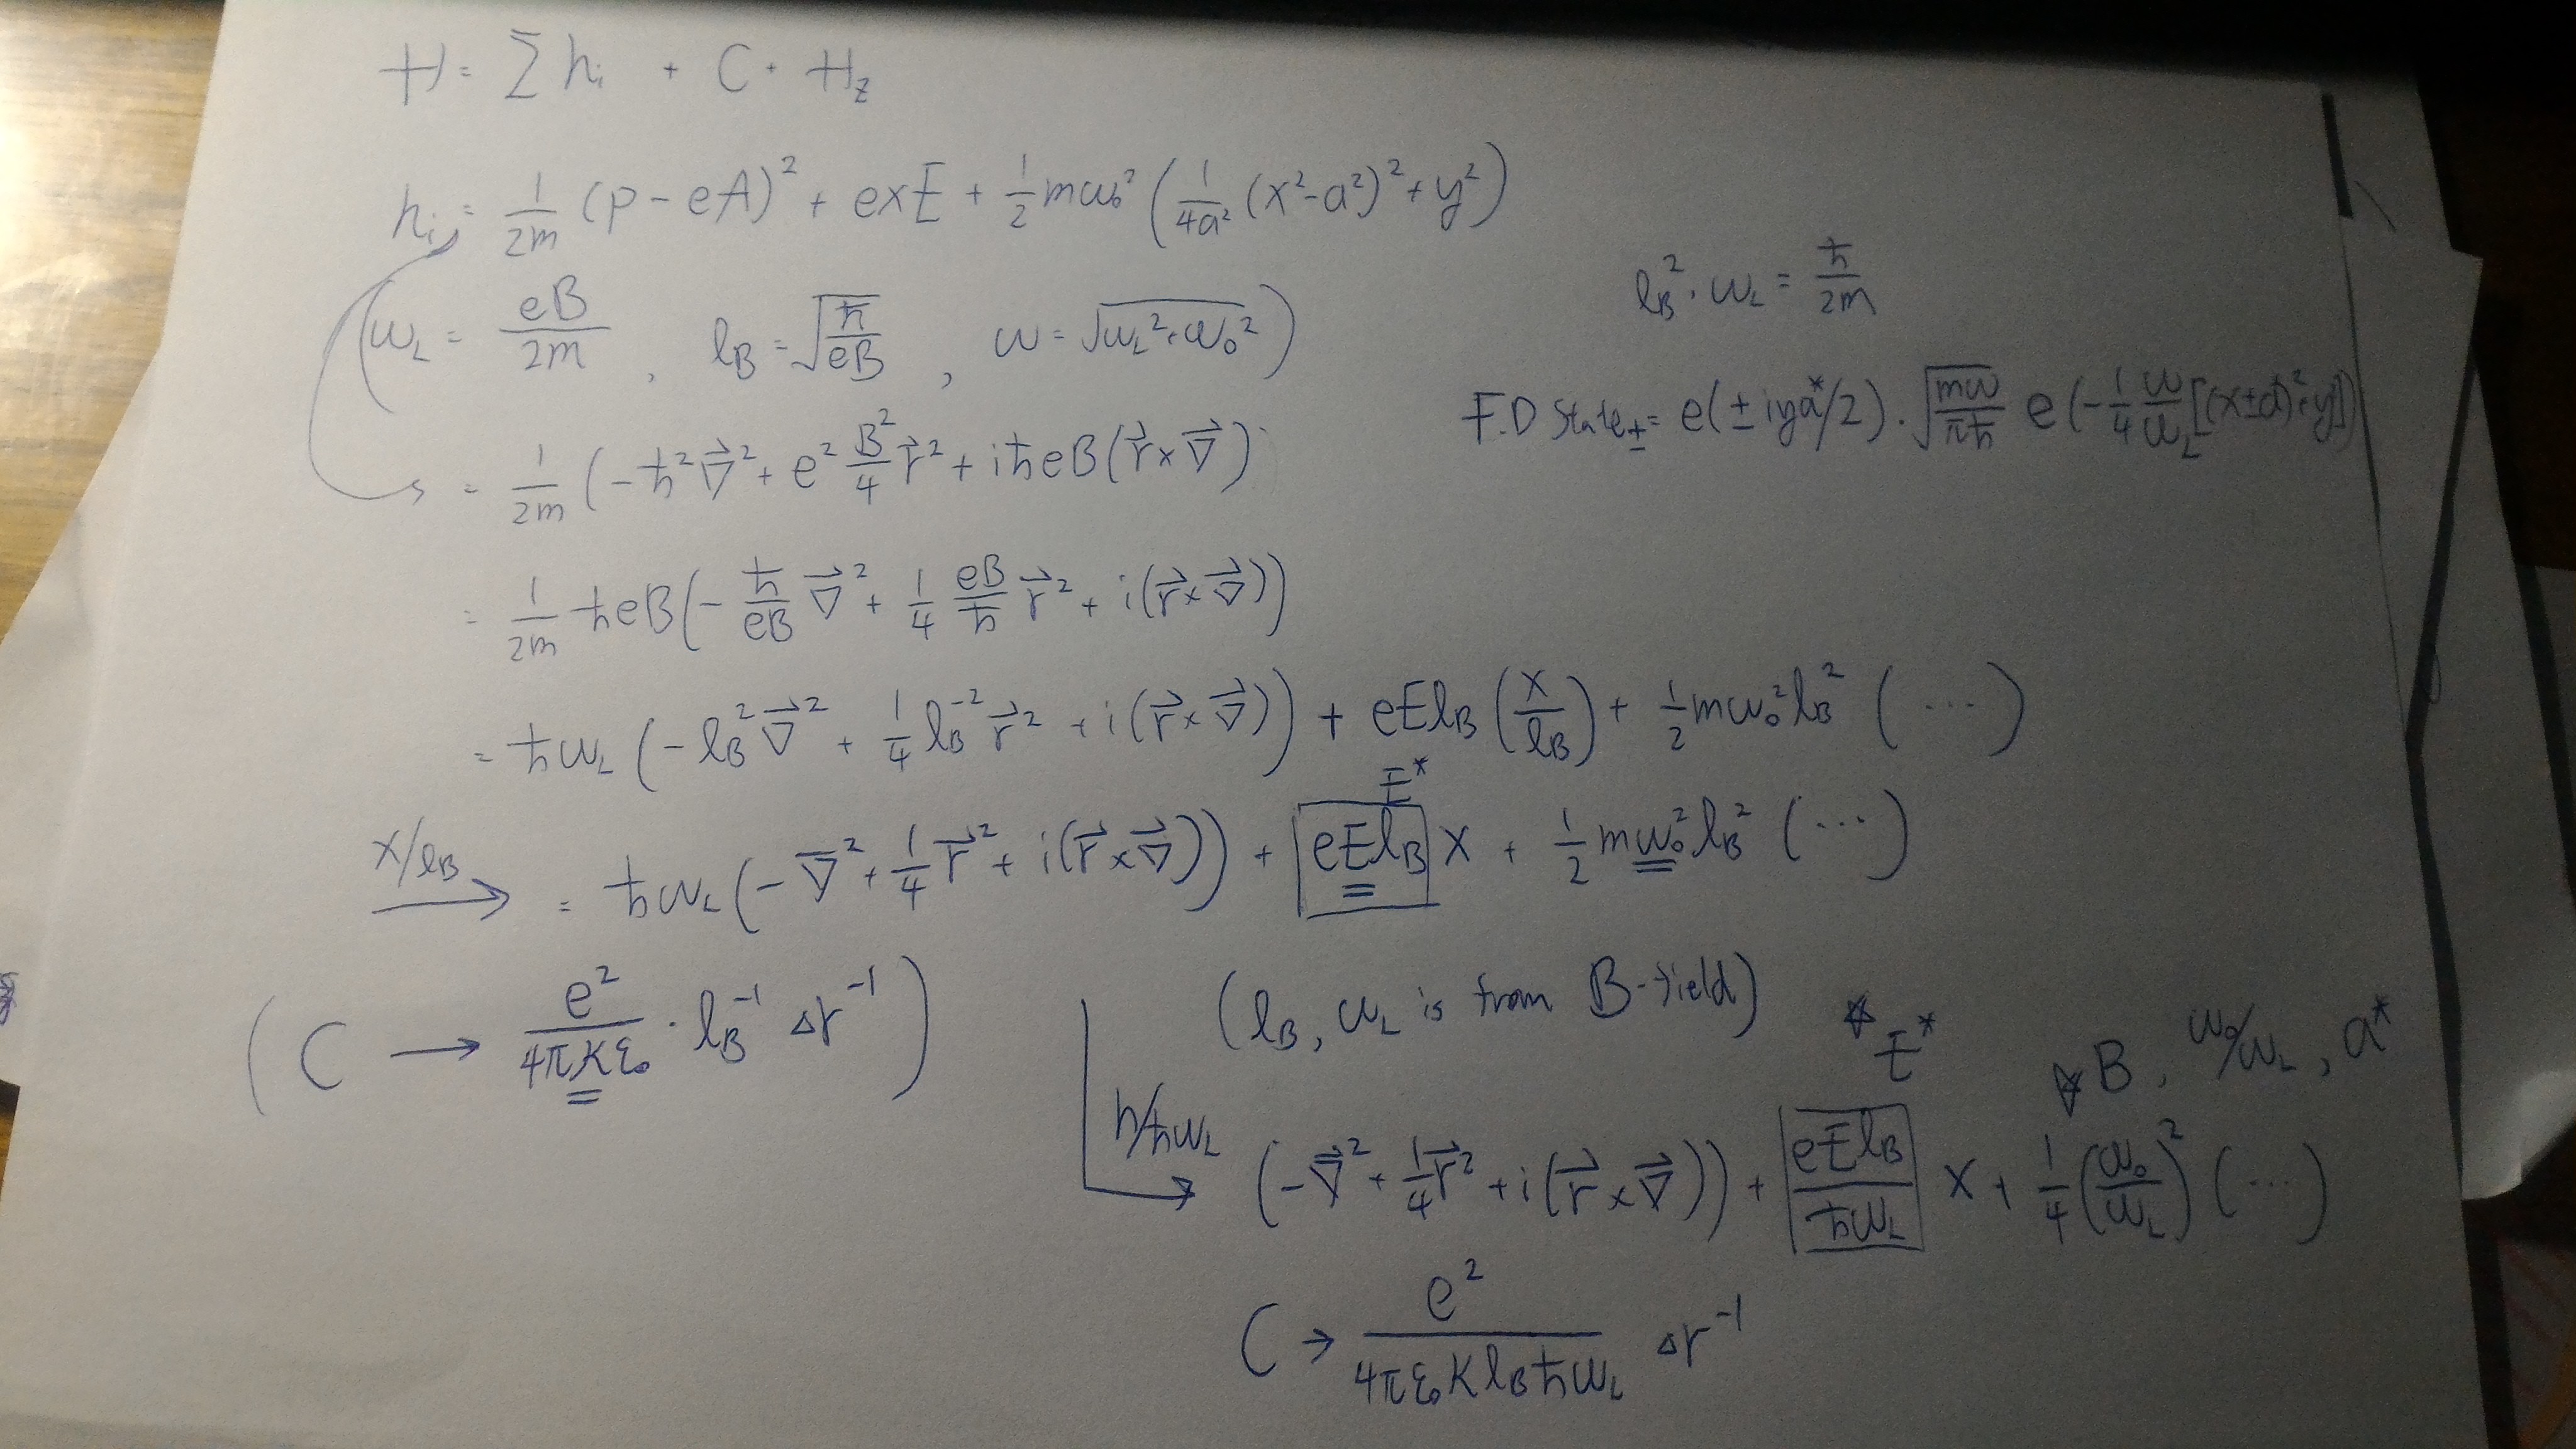 H = Σ hᵢ + C + H_z
hᵢ = 1/2m (p - eA)² + exE + 1/2 mω₀² (1/4a² (x² - a²)² + y²)
(ω_L = eB/2m , l_B = √(ħ/eB) , ω = √(ω_L² + ω₀²))
l_B² · ω_L = ħ/2m
F.D State± = e(± iya*/2) · √(mω/πħ) e(-1/4 ω/ω_L [(x±a)² + y²])
= 1/2m (-ħ²∇⃗² + e² B²/4 r⃗² + iħeB(r⃗×∇⃗))
= 1/2m ħeB(-ħ/eB ∇⃗² + 1/4 eB/ħ r⃗² + i(r⃗×∇⃗))
= ħω_L (-l_B²∇⃗² + 1/4 l_B⁻² r⃗² + i(r⃗×∇⃗)) + eEl_B (x/l_B) + 1/2 mω₀² l_B² (···)
E*
x/l_B → = ħω_L (-∇⃗² + 1/4 r⃗² + i(r⃗×∇⃗)) + eEl_B x + 1/2 mω₀² l_B² (···)
(C → e²/4πκε₀ · l_B⁻¹ Δr⁻¹)
(l_B, ω_L is from B-field)
E*
B, ω₀/ω_L, a*
h/ħω_L → (-∇⃗² + 1/4 r⃗² + i(r⃗×∇⃗)) + eEl_B/ħω_L x + 1/4 (ω₀/ω_L)² (···)
C → e²/4πε₀κl_Bħω_L Δr⁻¹